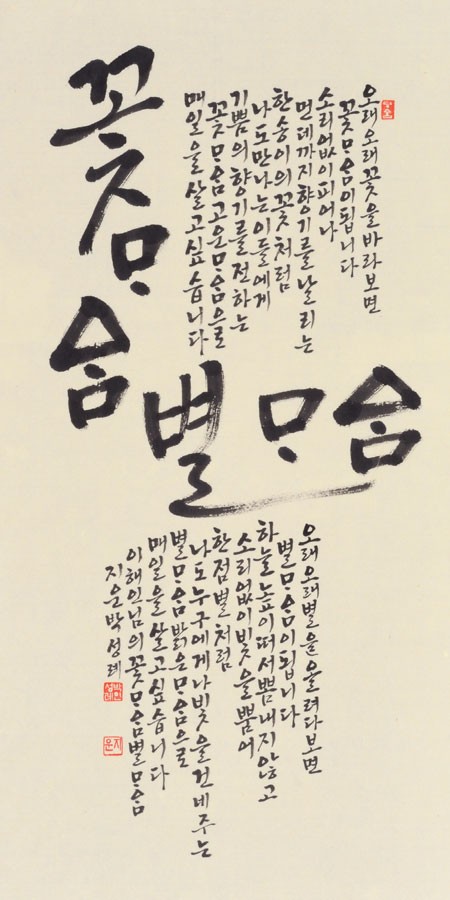 꽃ᄆᆞ음
별ᄆᆞ음
오래오래꽃을바라보면
꽃ᄆᆞ음이됩니다
소리없이피어나
먼데까지향기를날리는
한송이의꽃처럼
나도만나는이들에게
기쁨의향기를전하는
꽃ᄆᆞ음고운ᄆᆞ음으로
매일을살고싶습니다
오래오래별을올려다보면
별ᄆᆞ음이됩니다
하늘높이떠서뽐내지않고
소리없이빛을뿜어
한점별처럼
나도누구에게나빛을건네주는
별ᄆᆞ음밝은ᄆᆞ음으로
매일을살고싶습니다
이해인님의꽃ᄆᆞ음별ᄆᆞ음
지운박성례
지운